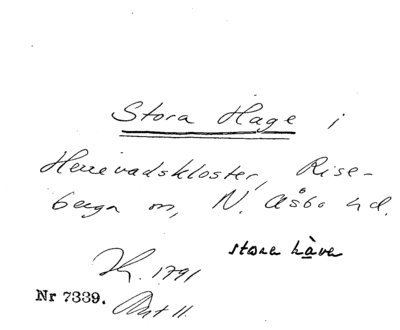 Stora Hage i
Herrevadskloster, Rise-
berga sn, N. Åsbo hd.
stora håva
K. 1791
Nr 7339. Akt 11.